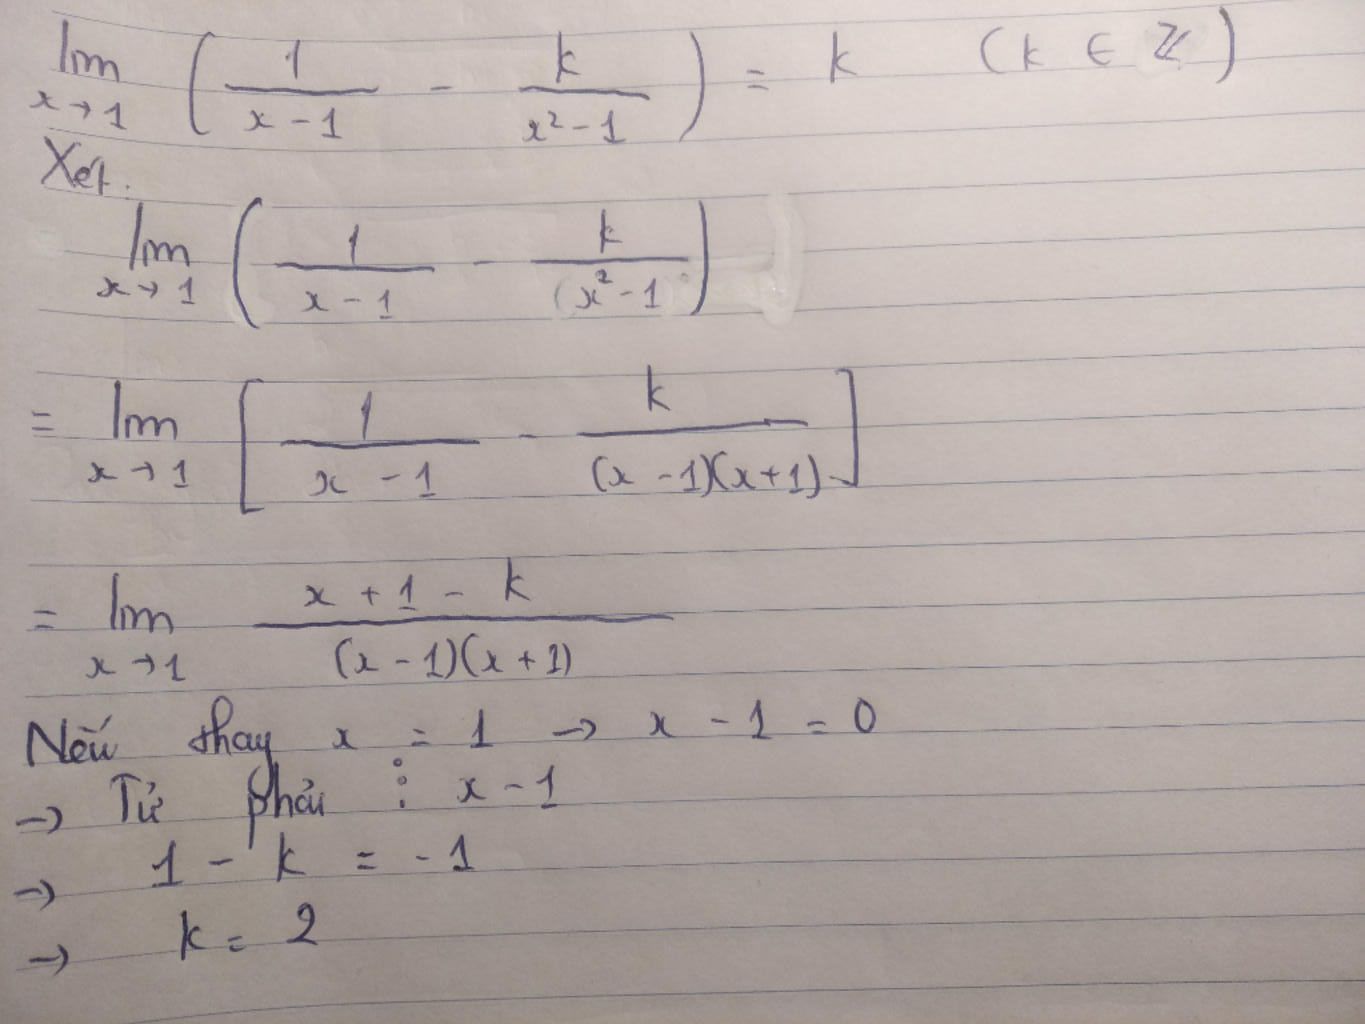 lim x→1 ( 1/(x-1) - k/(x²-1) ) = k (k ∈ ℤ)
Xét.
lim x→1 ( 1/(x-1) - k/(x²-1) )
= lim x→1 [ 1/(x-1) - k/((x-1)(x+1)) ]
= lim x→1 (x+1-k)/((x-1)(x+1))
Nếu thay x = 1 → x - 1 = 0
→ Tử phải ⋮ x - 1
→ 1 - k = -1
→ k = 2